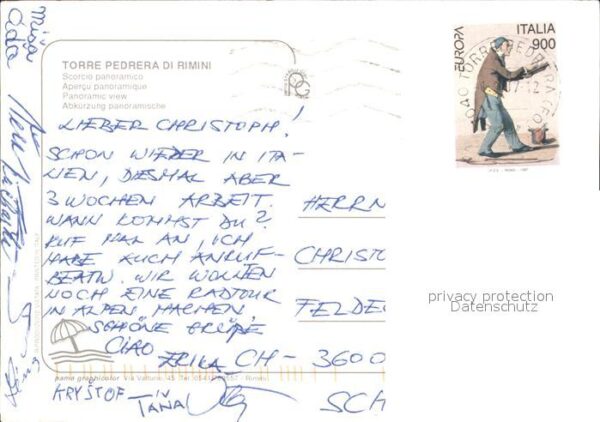 TORRE PEDRERA DI RIMINI
Scorcio panoramico
Aperçu panoramique
Panoramic view
Abkürzung panoramische
LIEBER CHRISTOPH!
SCHON WIEDER IN ITA-
LIEN, DIESMAL ABER
3 WOCHEN ARBEIT.
WANN KOMMST DU?
RUF MAL AN, ICH
HABE AUCH ANRUF-
BEATW. WIR WOLLEN
NOCH EINE RADTOUR
IN ALPEN MACHEN.
SCHÖNE GRÜßE
CIAO
ERIKA
KRYŠTOF
TÁŇA
EUROPA
ITALIA
900
HERRN
CHRISTO
FELDE
CH - 3600
SCH
privacy protection
Datenschutz